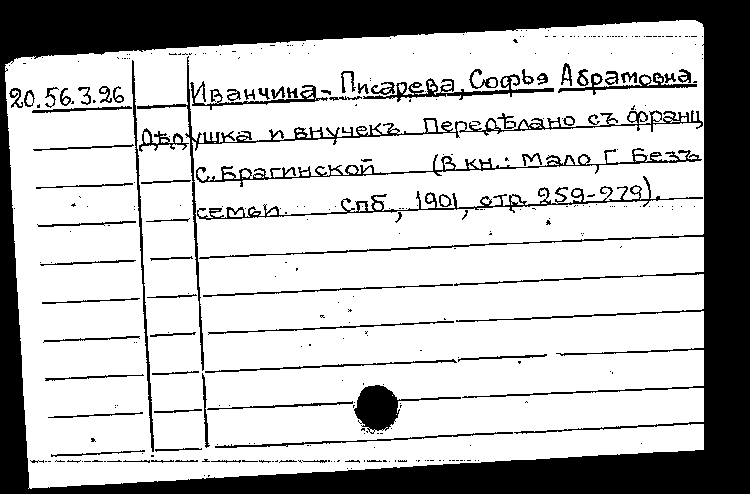 20.56.3.26 Иванчина-Писарева, Софья Абрамовна.
Дѣдушка и внучекъ. Передѣлано съ франц
С. Брагинской (В кн.: Мало, Г. Безъ
семьи. Спб., 1901, стр. 259-279).